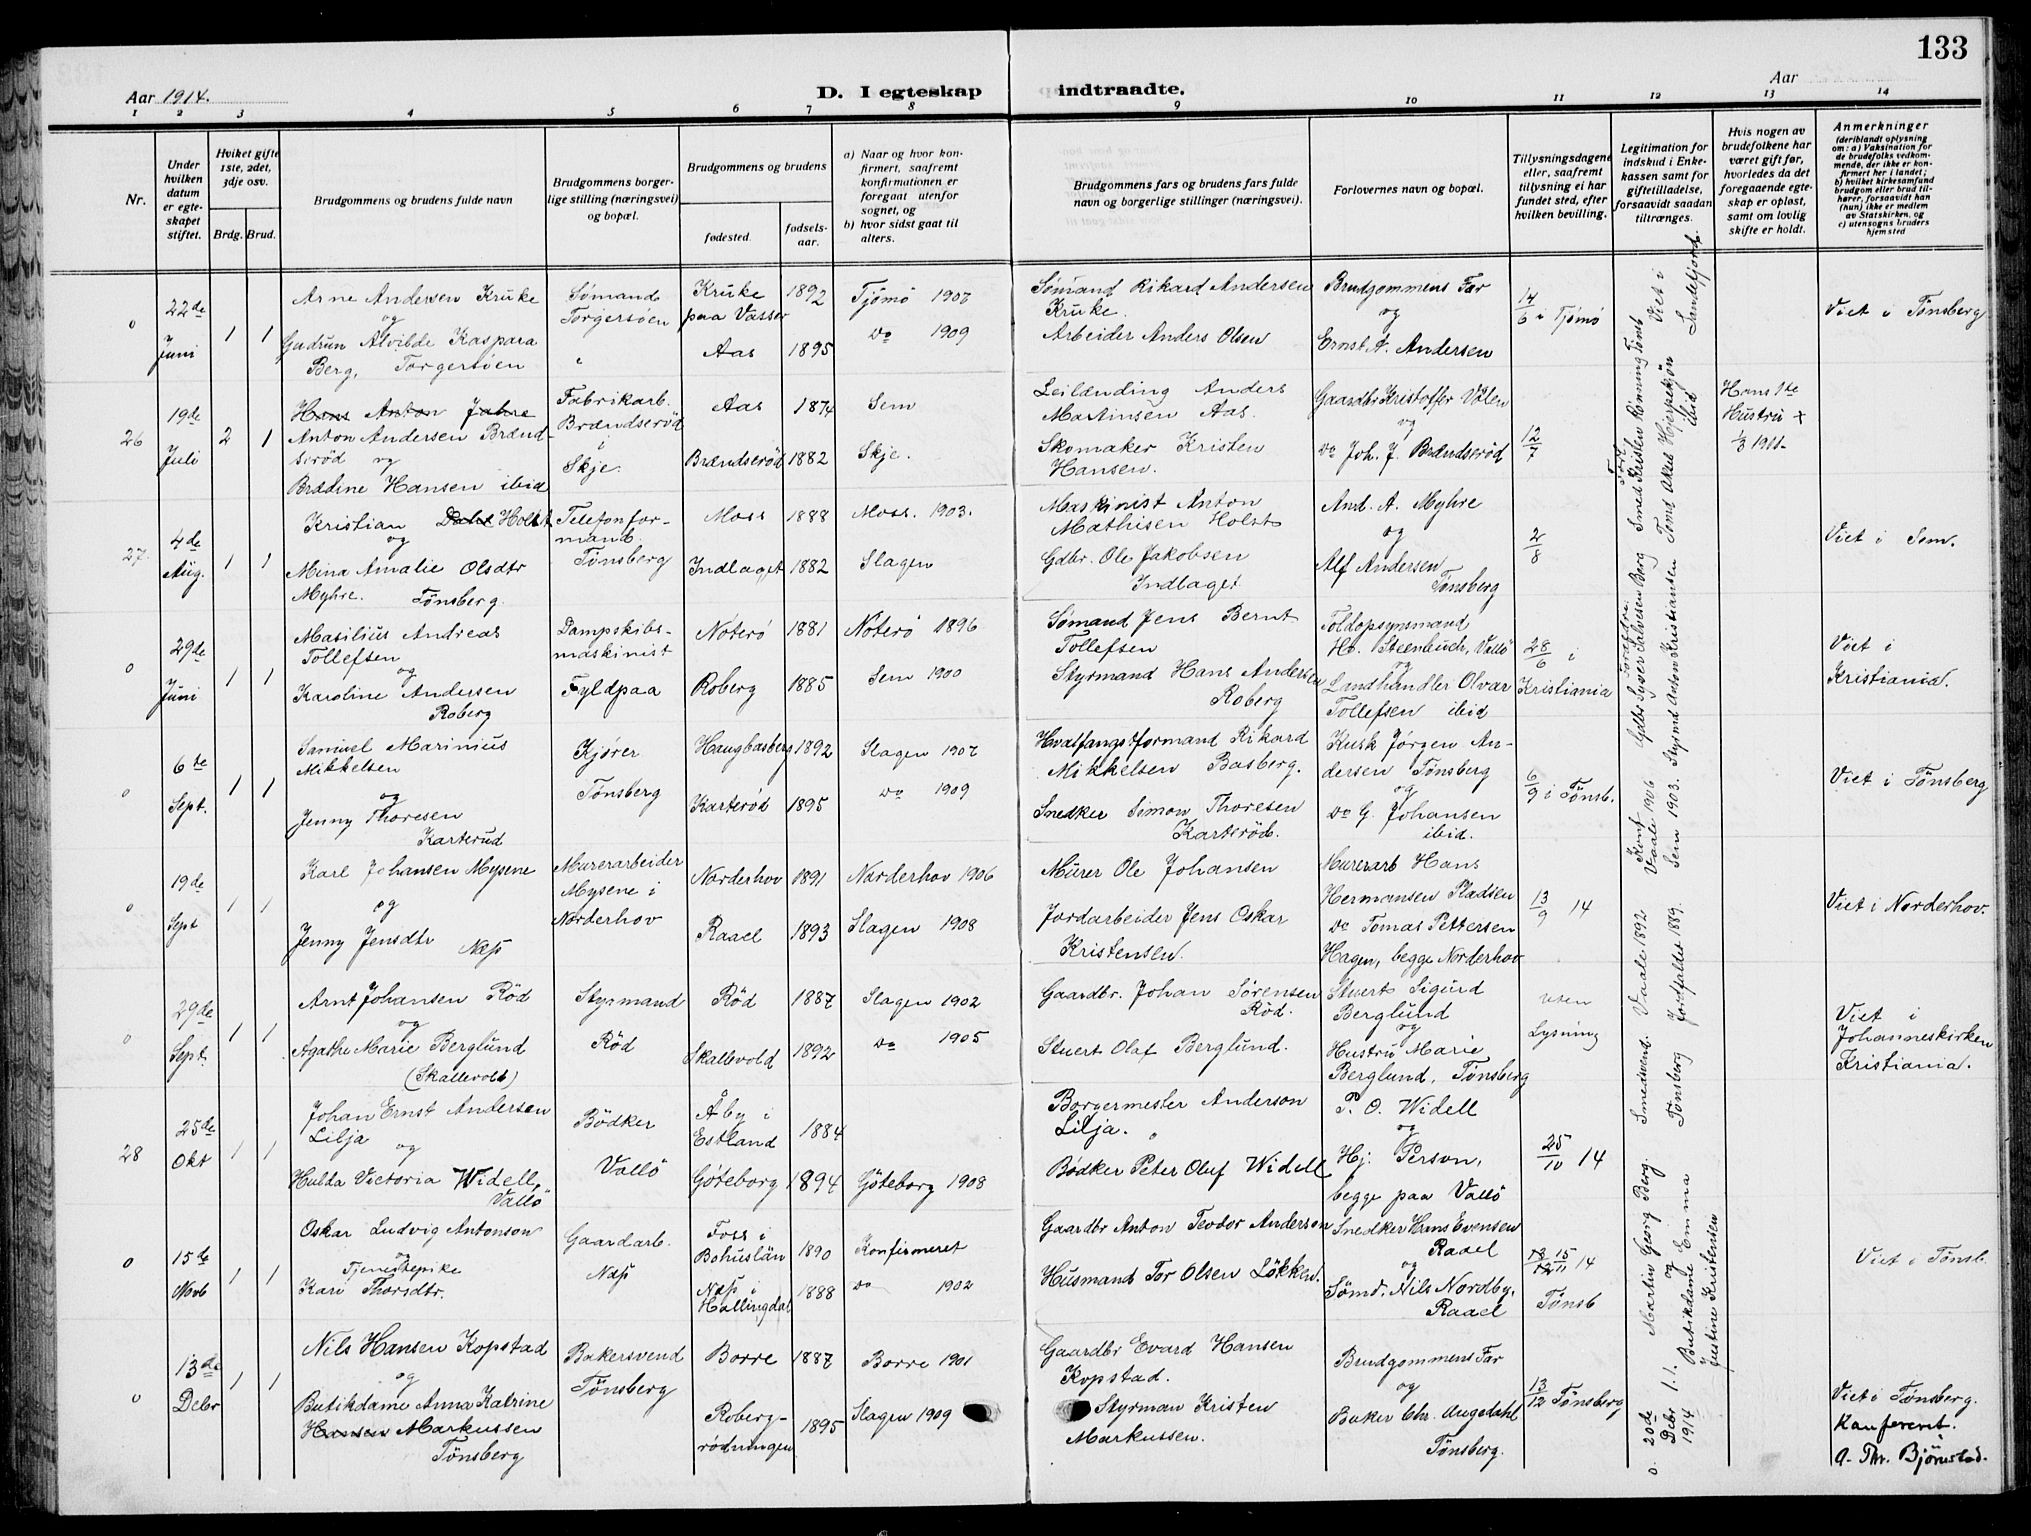 133
Aar 1914.
D. I egteskap
indtraadte.
Aar
1 2 3 4 5 6 7 8 9 10 11 12 13 14
Nr.
Under hvilken datum er egteskapet stiftet.
Hviket gifte 1ste, 2det, 3dje osv.
Brdg. Brud.
Brudgommens og brudens fulde navn
Brudgommens borgerlige stilling (næringsvei) og bopæl.
Brudgommens og brudens
fødested.
fødselsaar.
a) Naar og hvor konfirmert, saafremt konfirmationen er foregaat utenfor sognet, og
b) hvor sidst gaat til alters.
Brudgommens fars og brudens fars fulde navn og borgerlige stillinger (næringsvei).
Forlovernes navn og bopæl.
Tillysningsdagene eller, saafremt tillysning ei har fundet sted, efter hvilken bevilling.
Legitimation for indskud i Enkekassen samt for giftetilladelse, forsaavidt saadan tiltrænges.
Hvis nogen av brudefolkene har været gift før, hvorledes da det foregaaende egteskap er opløst, samt om lovlig skifte er holdt.
Anmerkninger
(deriblandt oplysning om: a) Vaksination for de brudefolks vedkommende, der ikke er konfirmert her i landet; b) hvilket kirkesamfund brudgom eller brud tilhører, forsaavidt han (hun) ikke er medlem av Statskirken, og c) utensogns bruders hjemsted
0
22de Juni
1 1
Arne Andersen Kruke
og
Gudrun Alvilde Kaspara
Berg, Torgersøen
Sømand
Torgersøen
Kruke paa Vasser 1892
Aas 1895
Tjømø 1907
do 1909
Sømand Rikard Andersen
Kruke.
Arbeider Anders Olsen
Brudgommens Far
og
Ernst A. Andersen
14/6 i Tjømø
Viet i Tønsberg
26
19de Juli
2 1
Hans Anton Jahre
Anton Andersen Brændserød og
Brædine Hansen ibid
Fabrikarb.
Brændserød
i
Skje.
Aas 1874
Brændserød 1882
Sem
Skje.
Leilænding Anders
Martinsen Aas.
Skomaker Kristen
Hansen.
Gaardbr Kristoffer Välen
og
do Joh. J. Brændserød
12/7
Hans 1te
Hustru +
27
4de Aug.
1 1
Kristian Dahl Holst
og
Mina Amalie Olsdtr
Myhre. Tønsberg
Telefonformand
Tønsberg
Moss 1888
Indlaget 1882
Moss. 1903.
Slagen
Maskinist Anton
Mathisen Holst
Gdbr. Ole Jakobsen
Indlaget
And. A. Myhre
og
Alf Andersen
Tønsberg
2/8
Viet i Sem.
0
29de Juni
1 1
Masilius Andreas
Tollefsen
og
Karoline Andersen
Roberg
Dampskibsmaskinist
Fyldpaa
Nøterø 1881
Roberg 1885
Nøterø 1896
Sem 1900
Sømand Jens Bernt
Tollefsen
Styrmand Hans Andersen
Roberg
Toldopsynsmand
Hr. Steenbuch, Vallö
og
Landhandler Olvar
Tollefsen ibid
28/6 i
Kristiania
Viet i
Kristiania.
0
6te Sept.
1 1
Samuel Marinius
Mikkelsen
og
Jenny Thoresen
Karterud
Kjører
Tønsberg
Haugbasberg 1892
Karterød 1895
Slagen 1907
do 1909
Hvalfangstformand Rikard
Mikkelsen Basberg.
Snedker Simon Thoresen
Karterød.
Kusk Jørgen Andersen Tønsberg
og
do G. Johansen
ibid.
6/9 i Tønsb.
Viet i Tönsberg
0
19de Sept
1 1
Karl Johansen Mysene
og
Jenny Jensdtr Næss
Murerarbeider
Mysene i
Norderhov
Norderhov 1891
Raael 1893
Norderhov 1906
Slagen 1908
Mürer Ole Johansen
Jordarbeider Jens Oskar
Kristensen.
Murerarb Hans
Hermansen Pladsen
do Tomas Pettersen
Hagen, begge Norderhov
13/9 14
Viet i Norderhov.
0
29de Sept.
1 1
Arnt Johansen Röd
og
Agathe Marie Berglund
(Skallevold)
Styrmand
Röd
Röd 1887
Skallevold 1892
Slagen 1902
do 1905
Gaardbr. Johan Sörensen
Röd.
Stuert Olaf Berglund.
Stuert Sigurd
Berglund
og
Hustru Marie
Berglund, Tönsberg
uten
Lysning
Viet i
Johanneskirken
Kristiania.
28
25de Okt
1 1
Johan Ernst Andersen
Lilja
og
Hulda Victoria Widell,
Vallö
Bödker
Vallö
Åby i
Estland 1884
Göteborg 1894
Göteborg 1908
Borgermester Anderson
Lilja.
Bödker Peter Oluf Widell
P. O. Widell
og
Hj. Person,
begge paa Vallö
25/10 14
0
15de Novb
1 1
Oskar Ludvig Antonson
og
Tjenestepike
Kari Thorsdtr.
Gaardarb.
Næss
Foss i
Bohuslän 1890
Næss i
Hallingdal 1888
Konfirmeret
do 1902
Gaardbr Anton Teodor Anderson
Husmand Tor Olsen Lökken.
Snedker Hans Evensen
Raael
og
Sömd. Nils Nordby,
Raael
15/11 14
Tønsb
Viet i Tønsb.
0
13de Debr
1 1
Nils Hansen Kopstad
og
Butikdame Anna Katrine
Hansen Markussen
Tönsberg
Bakersvend
Tønsberg
Borre 1887
Robergrødningen 1895
Borre 1901
Slagen 1909
Gaardbr Evard Hansen
Kopstad.
Styrman Kristen
Markussen.
Brudgommens Far
og
Baker Chr. Augedahl
Tönsberg.
13/12 Tönsberg
Viet i Tønsberg.
Konfereret.
A. Thr. Bjørnstad.
0. 20de Debr 1914 1. 1. Martin Georg Berg. og Butikdame Emma Justine Kristensen
Smedsvend. Tønsberg
Vaale 1892 Jordfaldet 1889.
Konf Vaale 1906 Sem 1903.
Forældre: Gdbr Syver Salvesen Berg Styrmd Anton Kristiansen
Forl Smed Kristen Rönning Tønsb Tømd Aksel Hjerpekjøn ibid
Viet i Sandefjord.